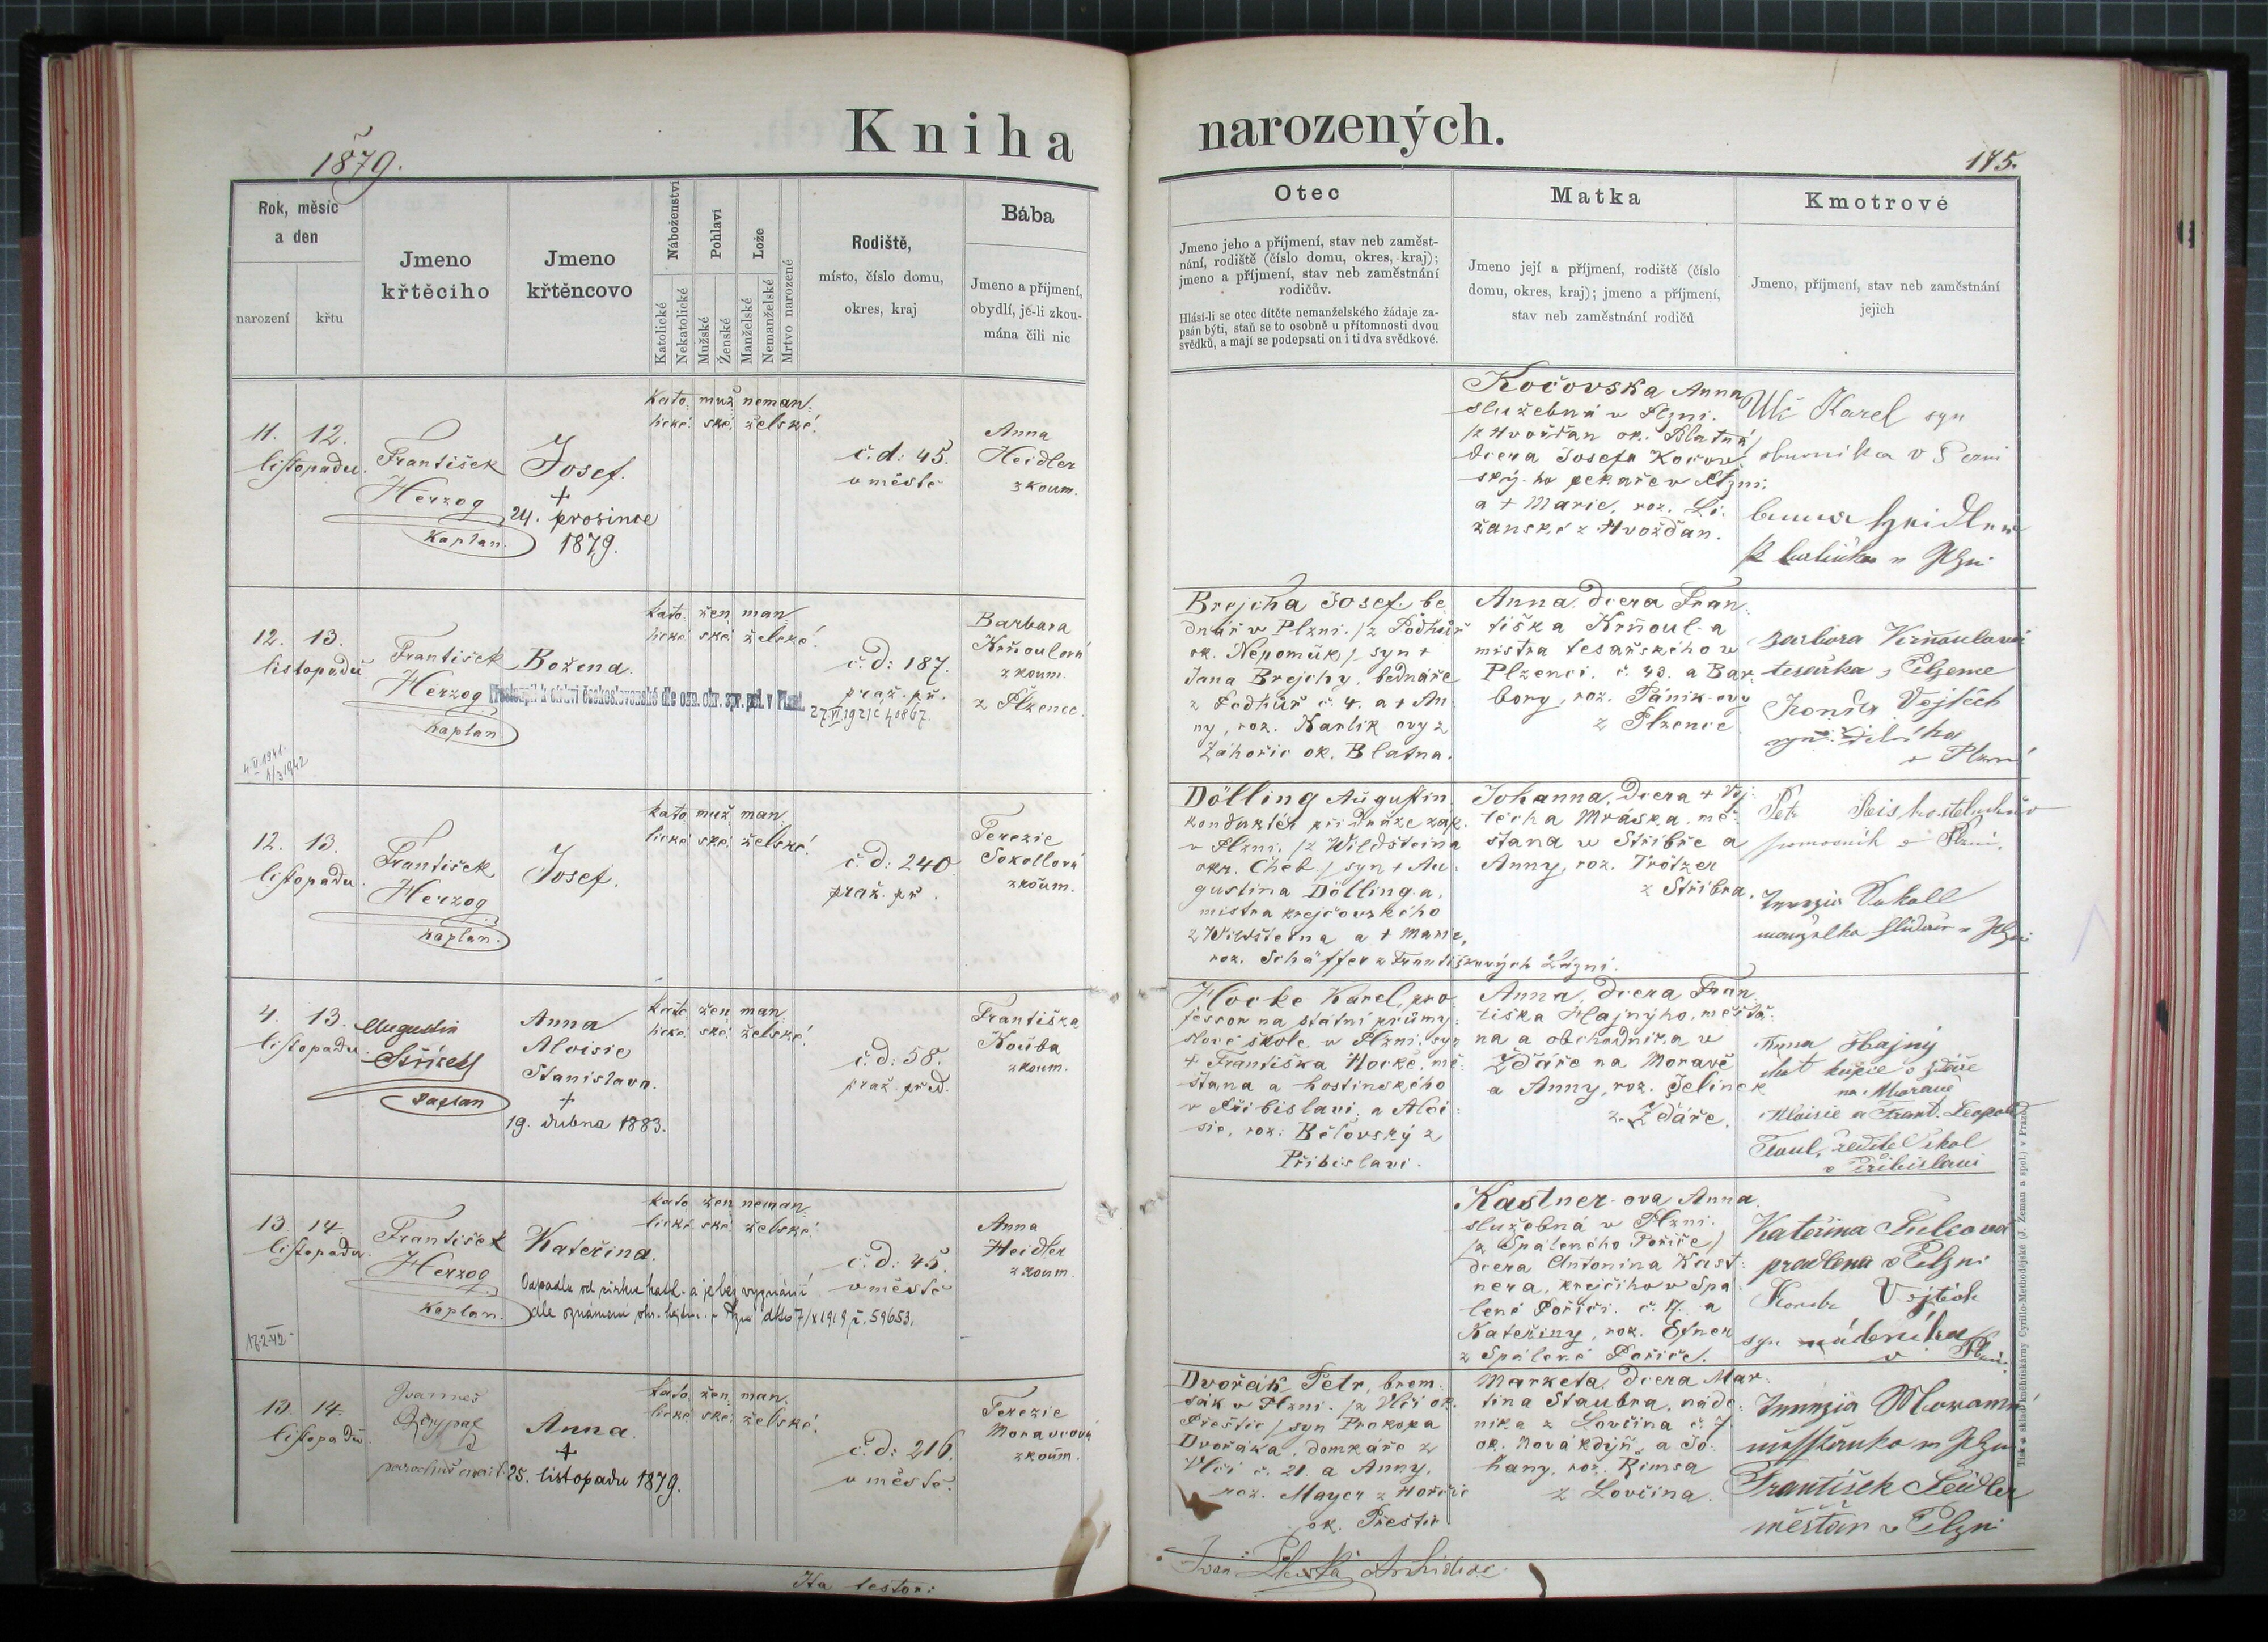 Kniha narozených.
1879.
175.
Rok, měsíc
a den
narození
křtu
Jmeno
křtěcího
Jmeno
křtěncovo
Náboženství
Katolické
Nekatolické
Pohlaví
Mužské
Ženské
Lože
Manželské
Nemanželské
Mrtvo narozené
Rodiště,
místo, číslo domu,
okres, kraj
Bába
Jmeno a příjmení,
obydlí, jé-li zkou-
mána čili nic
Otec
Jmeno jeho a příjmení, stav neb zaměst-
nání, rodiště (číslo domu, okres, kraj);
jmeno a příjmení, stav neb zaměstnání
rodičův.
Hlásí-li se otec dítěte nemanželského žádaje za-
psán býti, staň se to osobně u přítomnosti dvou
svědků, a mají se podepsati on i ti dva svědkové.
Matka
Jmeno její a příjmení, rodiště (číslo
domu, okres, kraj); jmeno a příjmení,
stav neb zaměstnání rodičů
Kmotrové
Jmeno, příjmení, stav neb zaměstnání
jejich
11. 12.
listopadu.
František
Herzog
Kaplan.
Josef.
+
24. prosince
1879.
kato muž neman
lické. ské. želské.
č. d: 45.
v městě
Anna
Heidler
zkoum.
Kočovska Anna
služebná v Plzni.
/z Hvožďan ok. Blatná/
dcera Josefa Kočov-
ský-ho pekaře v Plzni:
a + Marie, roz. Li-
žanské z Hvožďan.
Karel syn
v Plzni
12. 13.
listopadu
František
Herzog
Kaplan
Božena.
Přestoupil k církvi československé dle ozn. okr. spr. pol. v Plzni.
27.VI.1921 č. 40867.
4.II.1941.
kato žen man
lické ské želské.
č. d: 187.
praž. př.
Barbara
Krňoulová
zkoum.
z Plzence.
Brejcha Josef, be-
dnář v Plzni. /z Podhůř
ok. Nepomuk/ syn +
Jana Brejchy, bednáře
z Podhůř č. 4. a + An-
ny, roz. Karlík ovy z
Záhořic ok. Blatna.
Anna, dcera Fran-
tiška Krňoul-a
mistra tesařského v
Plzenci. č. 43. a Bar-
bory, roz. Pánik-ovy
z Plzence
Barbora Krňoulová
tesařka z Plzence
Vojtěch
v Plzni
12. 13.
listopadu.
František
Herzog
Kaplan.
Josef.
kato muž man
lické ské želské.
č. d: 240
praž. př.
Terezie
Sokollová
zkoum.
Dölling Augustin
konduktér při dráze záp.
v Plzni. /z Wildsteina
okr. Cheb/ syn + Au-
gustina Dölling-a,
mistra krejčovského
z Wildsteina a + Marie,
roz. Schäffer z Františkových Lázní.
Johanna, dcera + Voj-
těcha Mráska, mě-
šťana v Stříbře a
Anny, roz. Trötzer
z Stříbra.
Petr
pomocník v Plzni.
Sokoll
4. 13.
listopadu.
Augustin
Kaplan
Anna
Aloisie
Stanislava.
+
19. dubna 1883.
kato žen man
lické ské želské.
č. d: 58.
praž. před.
Františka
Kouba
zkoum.
Hocke Karel, pro-
fessor na státní průmy-
slové škole v Plzni, syn
+ Františka Hocke, mě-
šťana a hostinského
v Přibislavi, a Aloi-
sie, roz. Bělovský z
Přibislavi.
Anna, dcera Fran-
tiška Hajnýho, měšťa-
na a obchodníka v
Žďáře na Moravě
a Anny, roz. Jelinek
z Žďáře.
Anna Hajný
choť kupce v Ždáře
na Moravě
Aloisie a Frant. Leopold
ředitel škol
v Přibislavi
13. 14.
listopadu.
František
Herzog
Kaplan.
Kateřina.
Odpadla od církve kath. a je bez vyznání
dle oznámení okr. hejtm. v Plzni ddto 7/X 1919 č. 59653.
17.2.42
kato žen neman
lické ské želské.
č. d: 45.
v městě
Anna
Heidler
zkoum.
Kastner-ova Anna
služebná v Plzni.
/z Spáleného Poříče/
dcera Antonina Kast-
nera, krejčího v Spa-
lené Poříčí. č. 17. a
Kateřiny, roz. Efner
z Spálené Poříče.
Kateřina
pradlena v Plzni
Vojtěch
syn nádeníka
v Plzni
13. 14.
listopadu.
Anna.
+
25. listopadu 1879.
kato žen man
lické ské želské.
č. d: 216.
v městě.
Terezie
Moravcová
zkoum.
Dvořák Petr, brem-
sák v Plzni. /z Vlčí ok.
Přeštic/ syn Prokopa
Dvořáka, domkáře z
Vlčí č. 21. a Anny,
roz. Mayer z Hořčic
ok. Přeštic
Marketa, dcera Mar-
tina Staubra, náde-
níka z Lovčina č. 7
ok. Nová Kdýň, a Jo-
hany, roz. Rimsa
z Lovčina.
František Seidler
měšťan v Plzni
Tisk a sklad knihtiskárny Cyrillo-Methodějské (J. Zeman a spol.) v Praze.